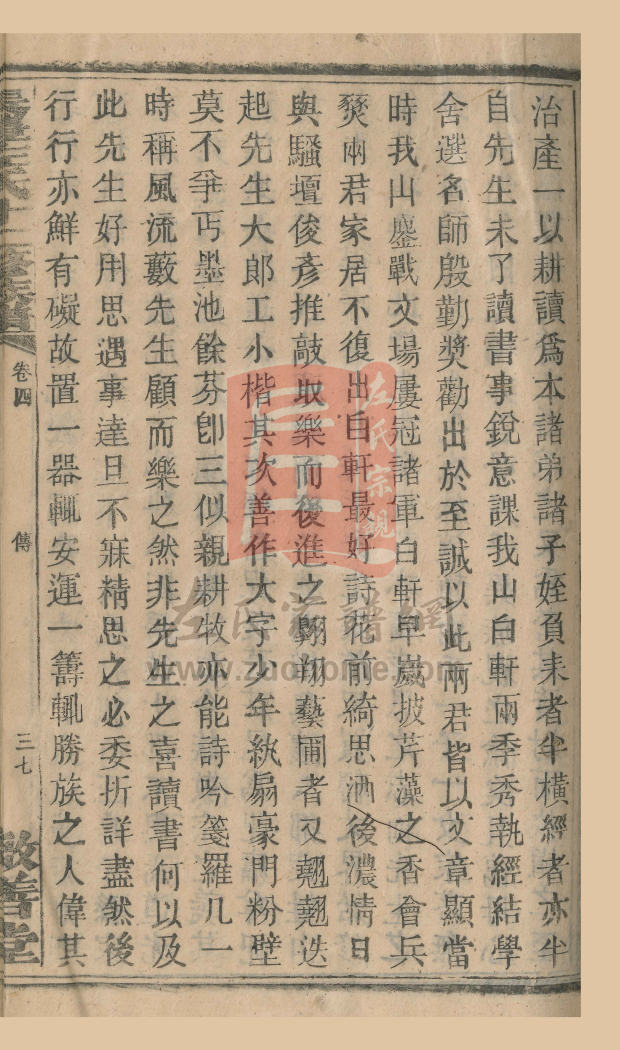 治產一以耕讀爲本諸弟諸子姪負耒者半橫經者亦半
自先生未了讀書事銳意課我山白軒兩季秀執經結學
舍選名師殷勤奬勸出於至誠以此兩君皆以文章顯當
時我山鏖戰文場屢冠諸軍白軒早歲披芹藻之香會兵
燹兩君家居不復出白軒最好詩花前綺思酒後濃情日
與騷壇俊彥推敲取樂而後進之翺翔藝圃者又翹翹迭
起先生大郎工小楷其次善作大字少年紈扇豪門粉壁
莫不爭丐墨池餘芬卽三似親耕牧亦能詩吟箋羅几一
時稱風流藪先生顧而樂之然非先生之喜讀書何以及
此先生好用思遇事達旦不寐精思之必委折詳盡然後
行行亦鮮有礙故置一器輒安運一籌輒勝族之人偉其
卷四
傳
三七
敬善堂
左氏宗親
左氏家譜網
www.zuojiome.com